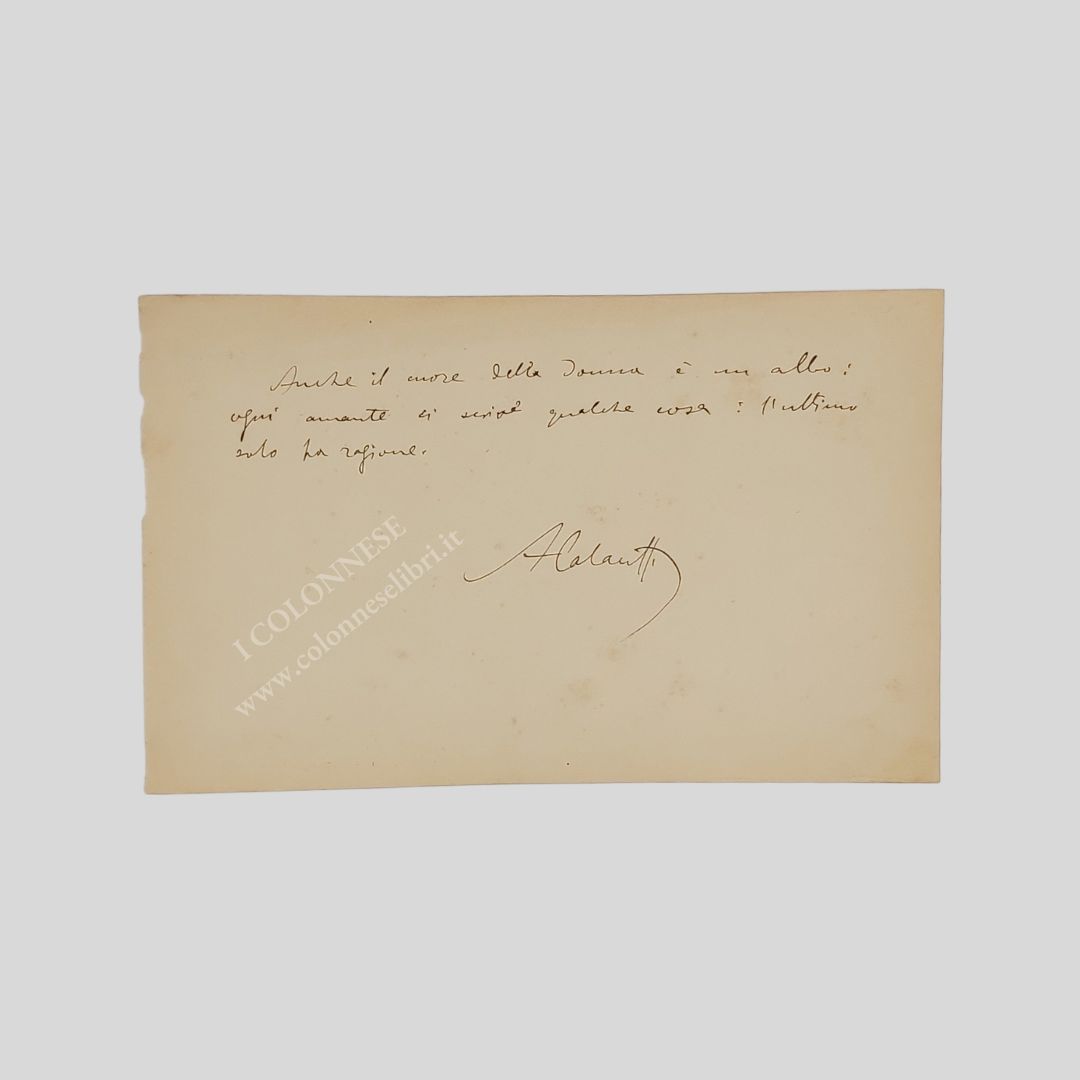 Anche il cuore della Donna è un albo:
ogni amante ci scrive qualche cosa: l'ultimo
solo ha ragione.
AColautti
I COLONNESE
www.colonneselibri.it